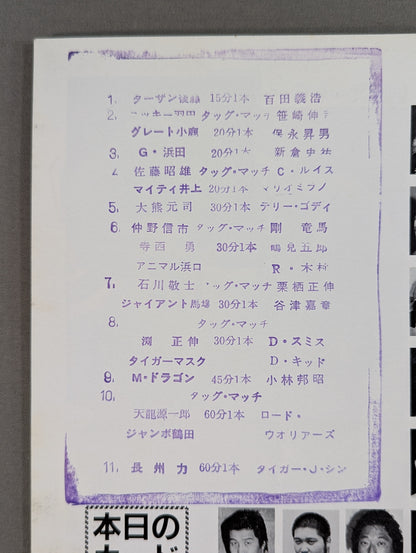 1. ターザン後藤 15分1本 百田義浩
2. ロッキー羽田 タッグ・マッチ 笹崎伸
グレート小鹿 20分1本 保永昇男
3 G・浜田 20分1本 新倉史祐
4 佐藤昭雄 タッグ・マッチ C・ルイス
マイティ井上 20分1本
5. 大熊元司 30分1本 テリー・ゴディ
6 仲野信市 タッグ・マッチ 剛 竜馬
寺西 勇 30分1本 鶴見五郎
アニマル浜口 R・木村
7. 石川敬士 タッグ・マッチ 栗栖正伸
ジャイアント馬場 30分1本 谷津嘉章
8. タッグ・マッチ
渕 正伸 30分1本 D・スミス
タイガーマスク D・キッド
9 M・ドラゴン 45分1本 小林邦昭
10. タッグ・マッチ
天龍源一郎 60分1本 ロード・
ジャンボ鶴田 ウオリアーズ
11. 長州 力 60分1本 タイガー・J・シン
本日の